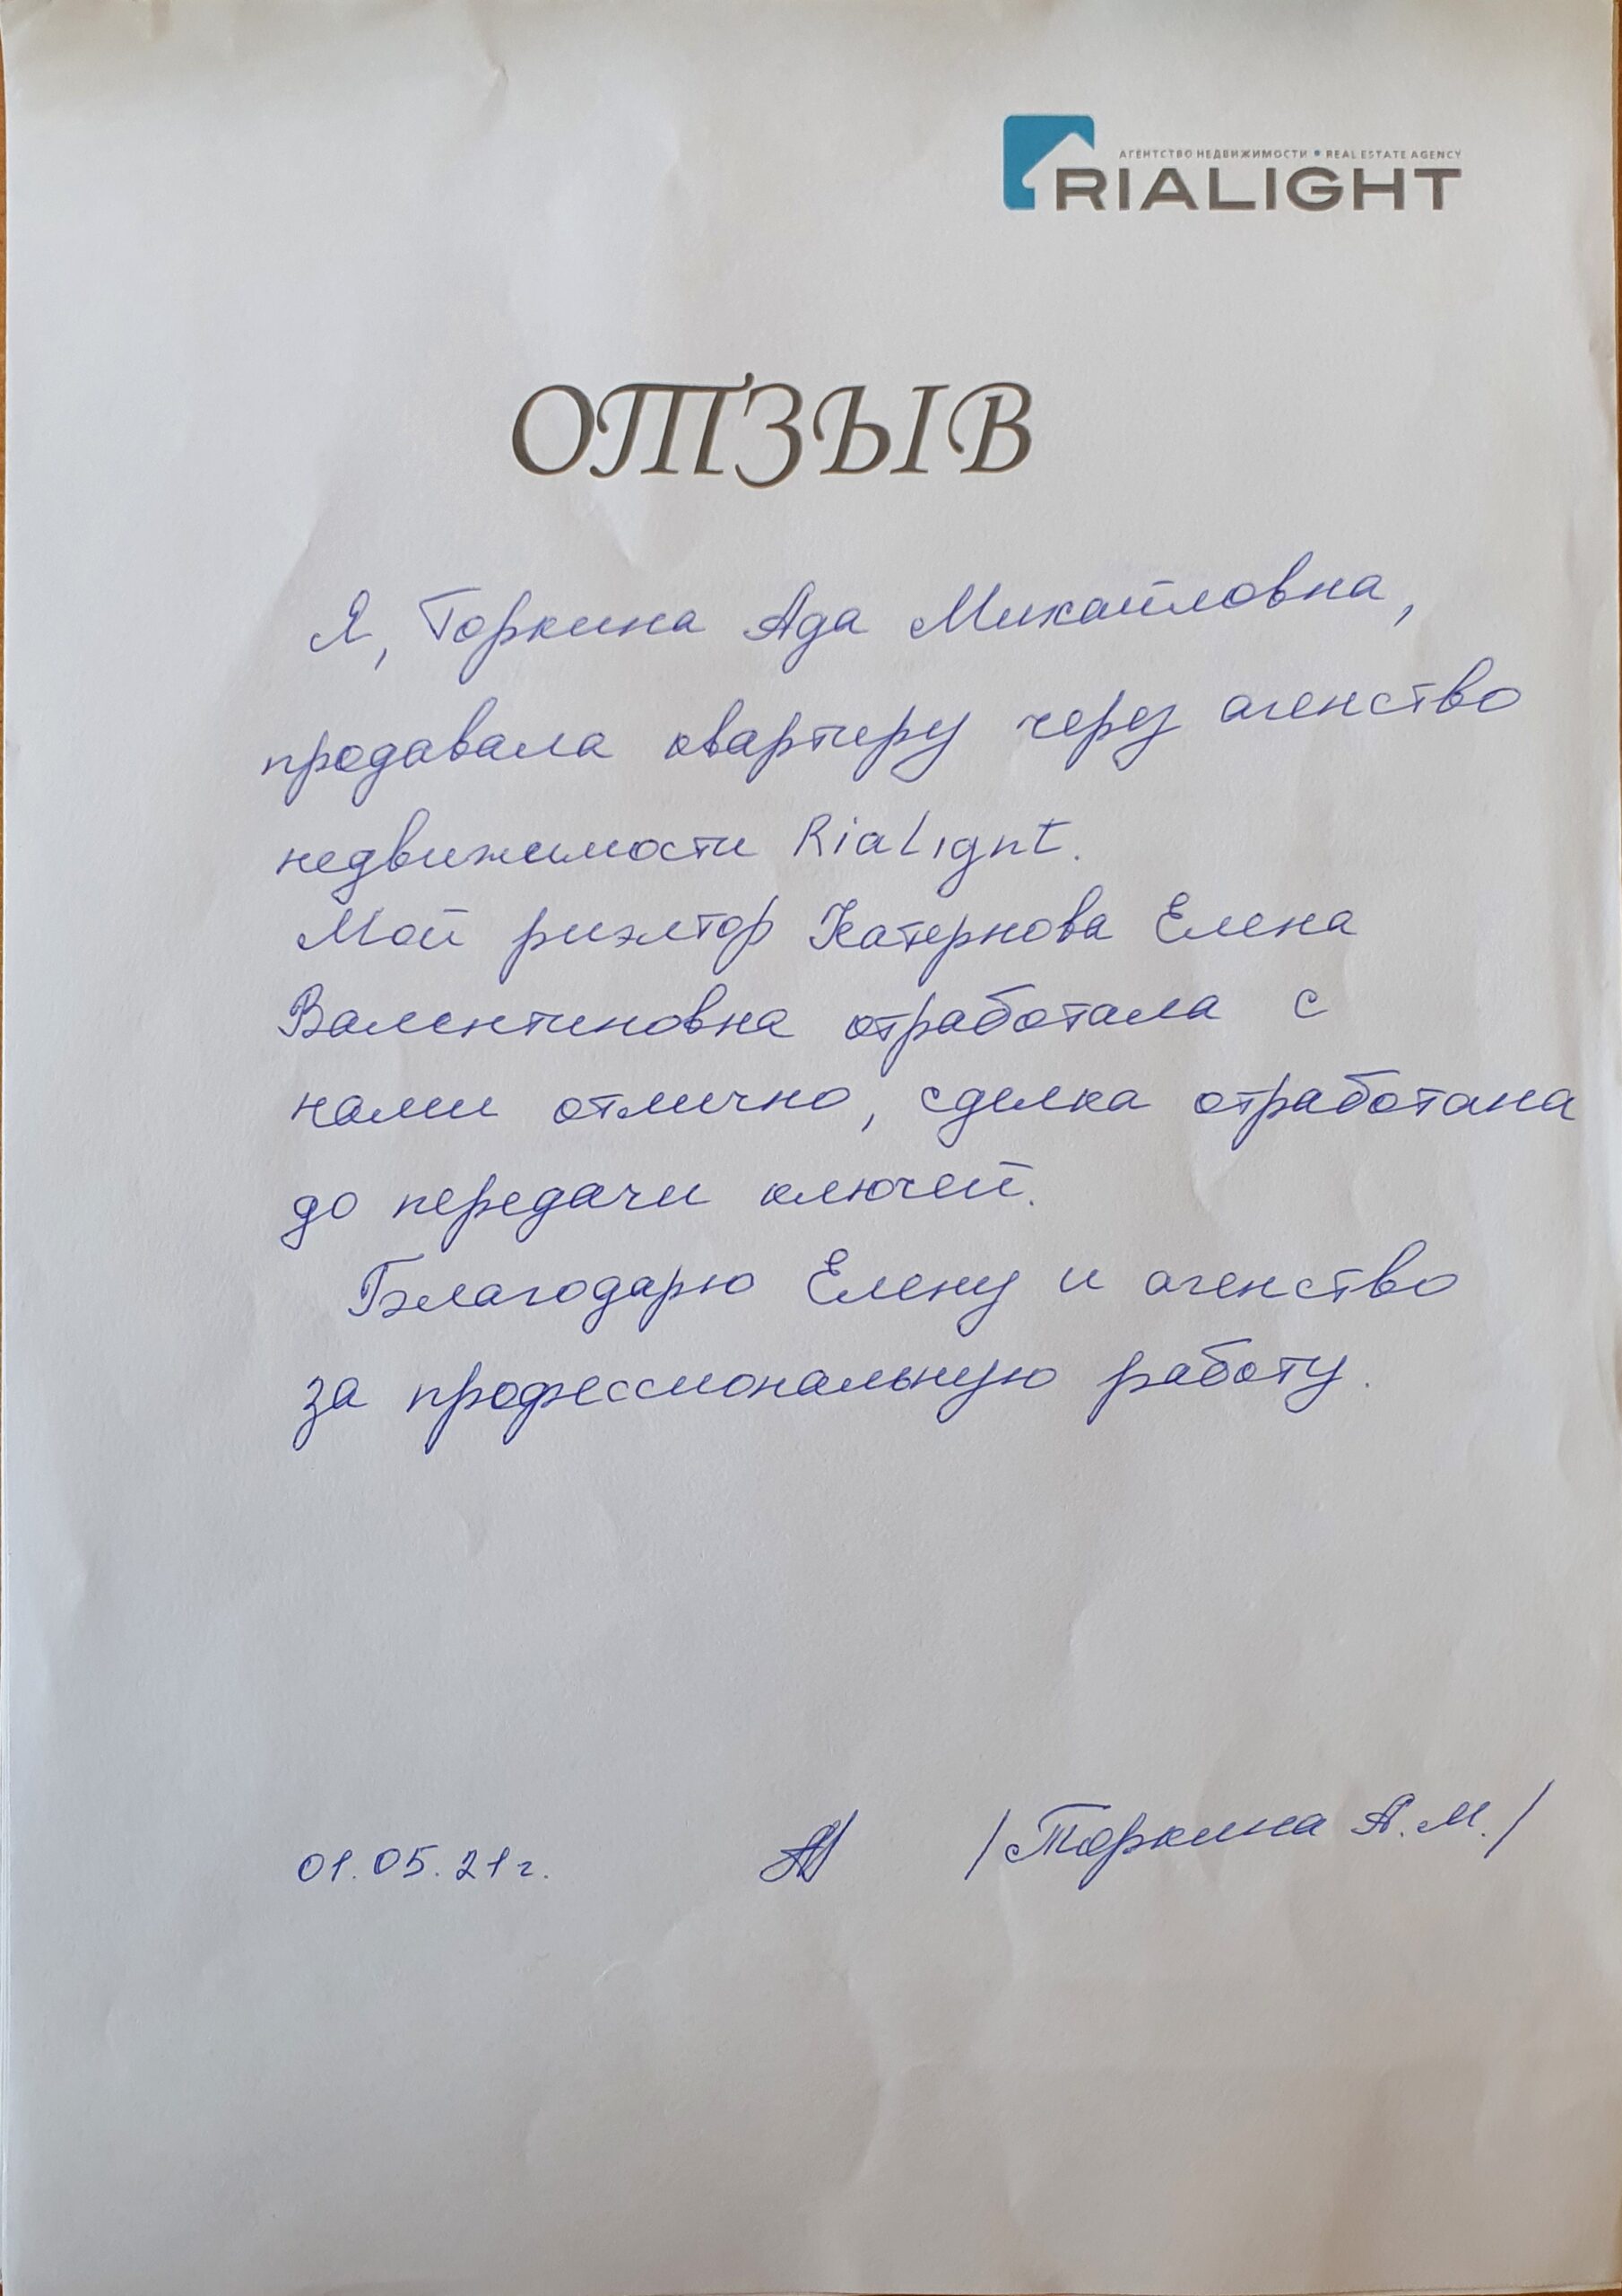 АГЕНТСТВО НЕДВИЖИМОСТИ • REAL ESTATE AGENCY
RIALIGHT
ОТЗЫВ
Я, Торкина Ада Михайловна,
продавала квартиру через агенство
недвижимости RiaLight.
Мой риэлтор Катернова Елена
Валентиновна отработала с
нами отлично, сделка отработана
до передачи ключей.
Благодарю Елену и агенство
за профессиональную работу.
01.05.21г. /Торкина А.М./